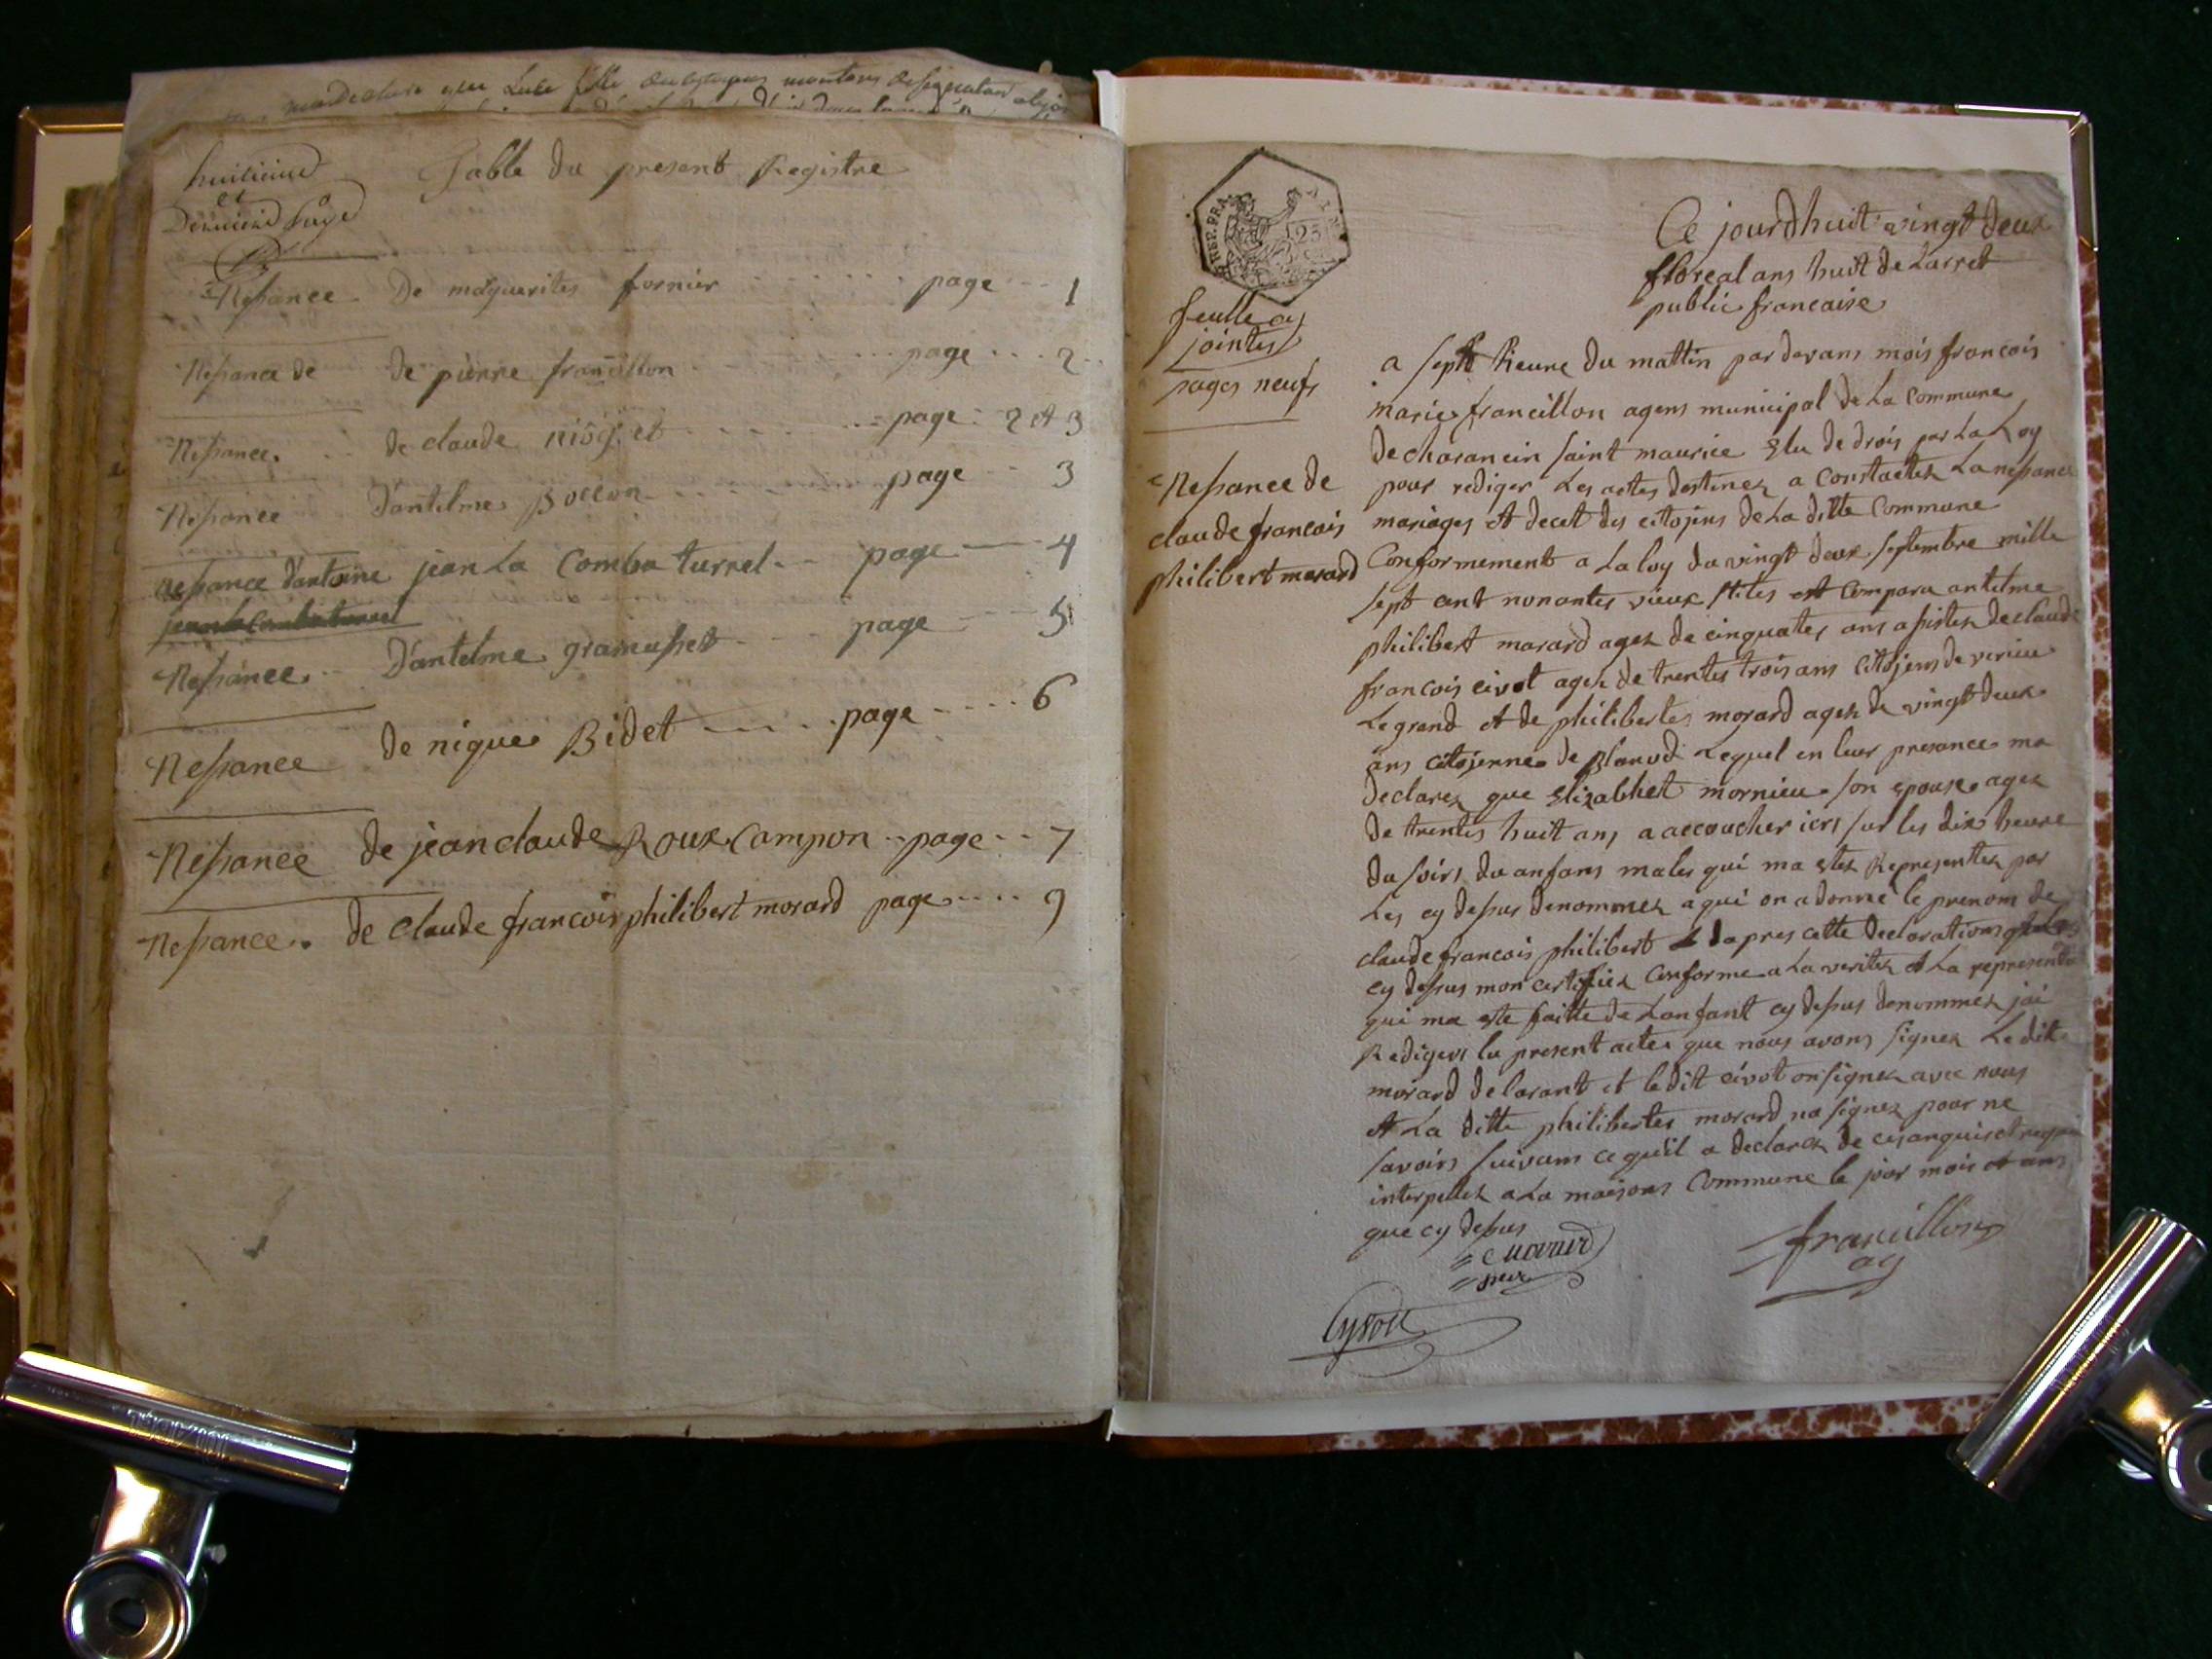 huitieme
et
Derniere page
Table du present Registre
Nessance De marguerites fornier page 1
Nessance de de pierre francillon page 2
Nessance de claude page 2 et 3
Nessance D'antelme Boccon page 3
nessance dantoine jean La Comba turrel page 4
Nessance D'antelme gramusset page 5
Nessance De nique Bidet page 6
Nessance de jean claude Roux Campon page 7
Nessance de claude francois philibert morard page 9
REP. FRA. 25
feulle a
jointes
pages neufs
Nessance de
claude francois
philibert morard
Ce jourdhuit vingt deux
floreal ans huit de Larret
public francaise
a sept heure du mattin par devans mois francois
marie francillon agens municipal de La Commune
de charancin saint maurice Elu de drois par La Loy
pour rediger Les actes destinez a Constactez La nessance
mariages et decet des citojins de La ditte Commune
Conformement a La loy du vingt deux septembre mille
sept cent nonantes vieux stiles est Comparu antelme
philibert morard agez de cinquates ans assistez de claude
francois civot agez de trentes trois ans Citojens de virieu
Le grand et de philibertes morard agez de vingt deux
ans citojenne de Lequel en leur presance ma
declarez que Elizabhet mornieu son epouse agez
de trentes huit ans a accoucher iers sur les dix heure
du soirs du anfans males qui ma etez Representez par
Les cy dessus denommez a qui on a donné le prenom de
claude francois philibert dapres cette declarations
cy dessus mon certifiez Conforme a La veritez et La represents
qui ma este faitte de Lanfant cy dessus denommez jai
Redigers lu present actes que nous avons signez Le dit
morard delarant et le dit civot on signez avec nous
et La ditte philibertes morard na signez pour ne
savoirs suivans ce qu'il a declarez de ces anquis et requi
interpellez a La maisons Commune le jour mois et ans
que cy dessus
morard
francillon
ag
Cyvott